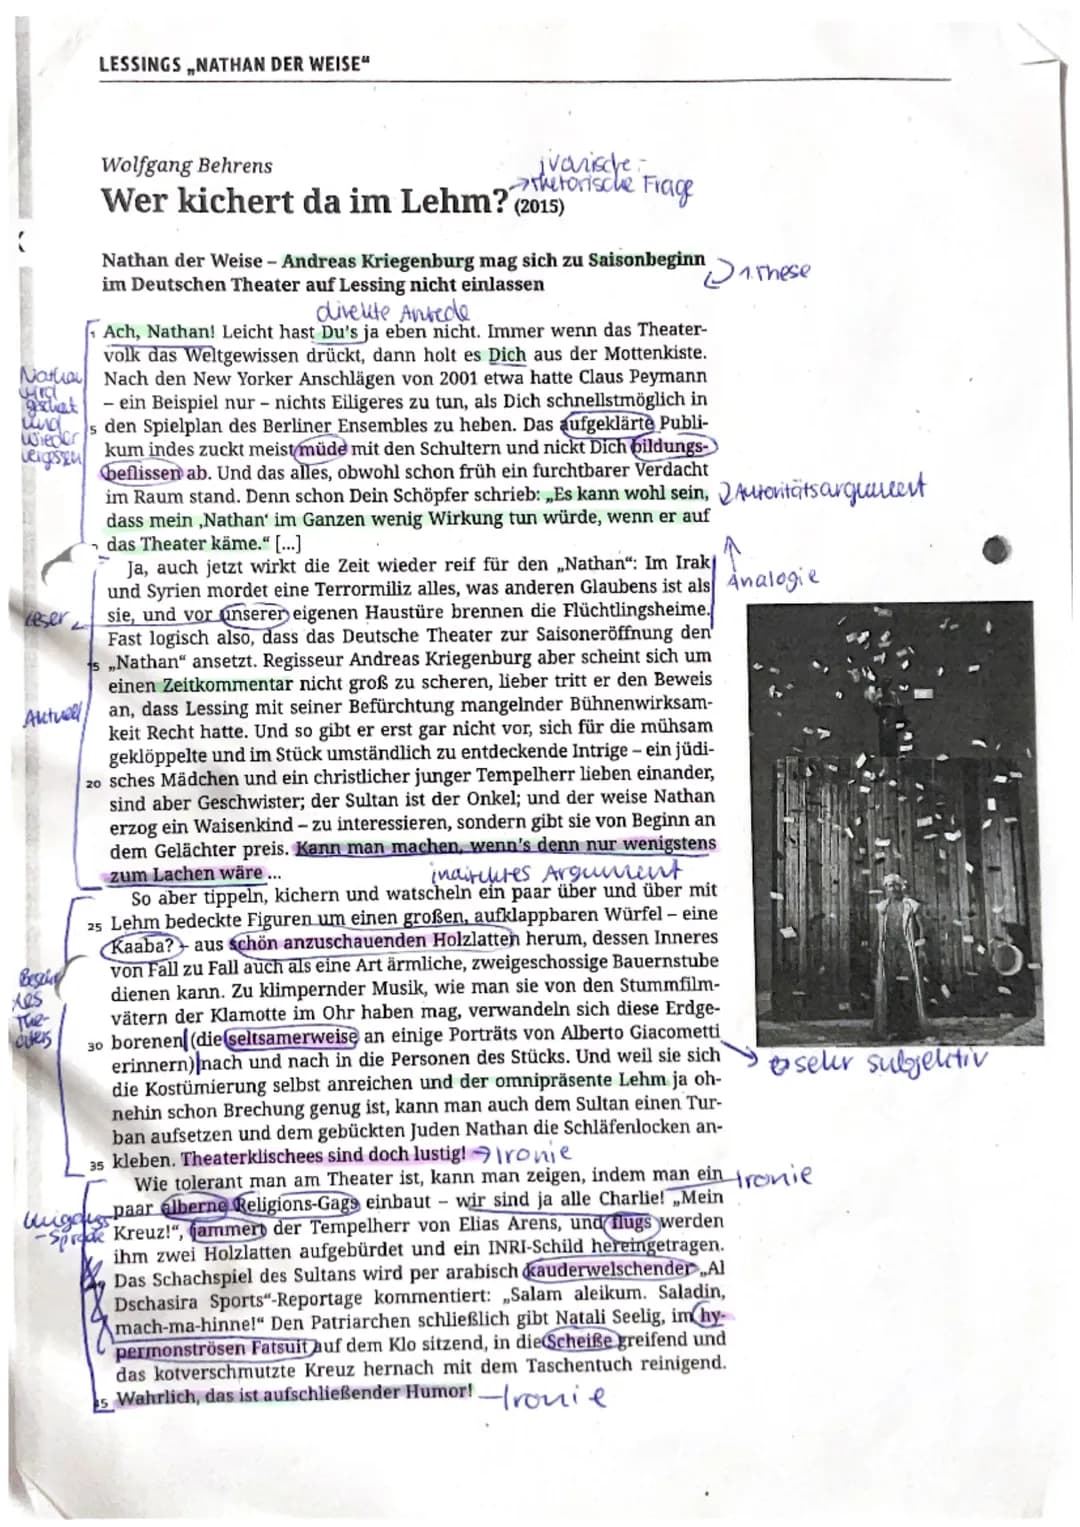 LESSINGS „NATHAN DER WEISE“
Wolfgang Behrens
ironische
→ rhetorische Frage
Wer kichert da im Lehm? (2015)
Nathan der Weise – Andreas Kriegenburg mag sich zu Saisonbeginn
im Deutschen Theater auf Lessing nicht einlassen
1. These
direkte Anrede
1 Ach, Nathan! Leicht hast Du's ja eben nicht. Immer wenn das Theater-
volk das Weltgewissen drückt, dann holt es Dich aus der Mottenkiste.
Nach den New Yorker Anschlägen von 2001 etwa hatte Claus Peymann
– ein Beispiel nur – nichts Eiligeres zu tun, als Dich schnellstmöglich in
5 den Spielplan des Berliner Ensembles zu heben. Das aufgeklärte Publi-
kum indes zuckt meist müde mit den Schultern und nickt Dich bildungs-
beflissen ab. Und das alles, obwohl schon früh ein furchtbarer Verdacht
im Raum stand. Denn schon Dein Schöpfer schrieb: „Es kann wohl sein,
dass mein ‚Nathan‘ im Ganzen wenig Wirkung tun würde, wenn er auf
das Theater käme.“ [...]
Nathan
wird
und
wieder
vergessen
Autoritätsargument
Ja, auch jetzt wirkt die Zeit wieder reif für den „Nathan“: Im Irak
und Syrien mordet eine Terrormiliz alles, was anderen Glaubens ist als
sie, und vor unserer eigenen Haustüre brennen die Flüchtlingsheime.
Fast logisch also, dass das Deutsche Theater zur Saisoneröffnung den
15 „Nathan“ ansetzt. Regisseur Andreas Kriegenburg aber scheint sich um
einen Zeitkommentar nicht groß zu scheren, lieber tritt er den Beweis
an, dass Lessing mit seiner Befürchtung mangelnder Bühnenwirksam-
keit Recht hatte. Und so gibt er erst gar nicht vor, sich für die mühsam
geklöppelte und im Stück umständlich zu entdeckende Intrige – ein jüdi-
20 sches Mädchen und ein christlicher junger Tempelherr lieben einander,
sind aber Geschwister; der Sultan ist der Onkel; und der weise Nathan
erzog ein Waisenkind – zu interessieren, sondern gibt sie von Beginn an
dem Gelächter preis. Kann man machen, wenn's denn nur wenigstens
zum Lachen wäre ...
Analogie
Leser
Aktuell
indirektes Argument
So aber tippeln, kichern und watscheln ein paar über und über mit
25 Lehm bedeckte Figuren um einen großen, aufklappbaren Würfel – eine
Kaaba? – aus schön anzuschauenden Holzlatten herum, dessen Inneres
von Fall zu Fall auch als eine Art ärmliche, zweigeschossige Bauernstube
dienen kann. Zu klimpernder Musik, wie man sie von den Stummfilm-
vätern der Klamotte im Ohr haben mag, verwandeln sich diese Erdge-
30 borenen (die seltsamerweise an einige Porträts von Alberto Giacometti
erinnern) nach und nach in die Personen des Stücks. Und weil sie sich
die Kostümierung selbst anreichen und der omnipräsente Lehm ja oh-
nehin schon Brechung genug ist, kann man auch dem Sultan einen Tur-
ban aufsetzen und dem gebückten Juden Nathan die Schläfenlocken an-
35 kleben. Theaterklischees sind doch lustig! → Ironie
des
The-
aters
sehr subjektiv
Wie tolerant man am Theater ist, kann man zeigen, indem man ein
paar alberne Religions-Gags einbaut – wir sind ja alle Charlie! „Mein
Kreuz!“, jammert der Tempelherr von Elias Arens, und flugs werden
ihm zwei Holzlatten aufgebürdet und ein INRI-Schild hereingetragen.
Das Schachspiel des Sultans wird per arabisch kauderwelschender „Al
Dschasira Sports“-Reportage kommentiert: „Salam aleikum. Saladin,
mach-ma-hinne!“ Den Patriarchen schließlich gibt Natali Seelig, im hy-
permonströsen Fatsuit auf dem Klo sitzend, in die Scheiße greifend und
das kotverschmutzte Kreuz hernach mit dem Taschentuch reinigend.
45 Wahrlich, das ist aufschließender Humor! – Ironie
Ironie
Umgangs
-sprache